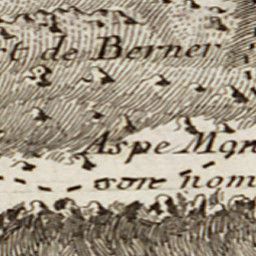 t de Berner
Aspe Mon
son nom